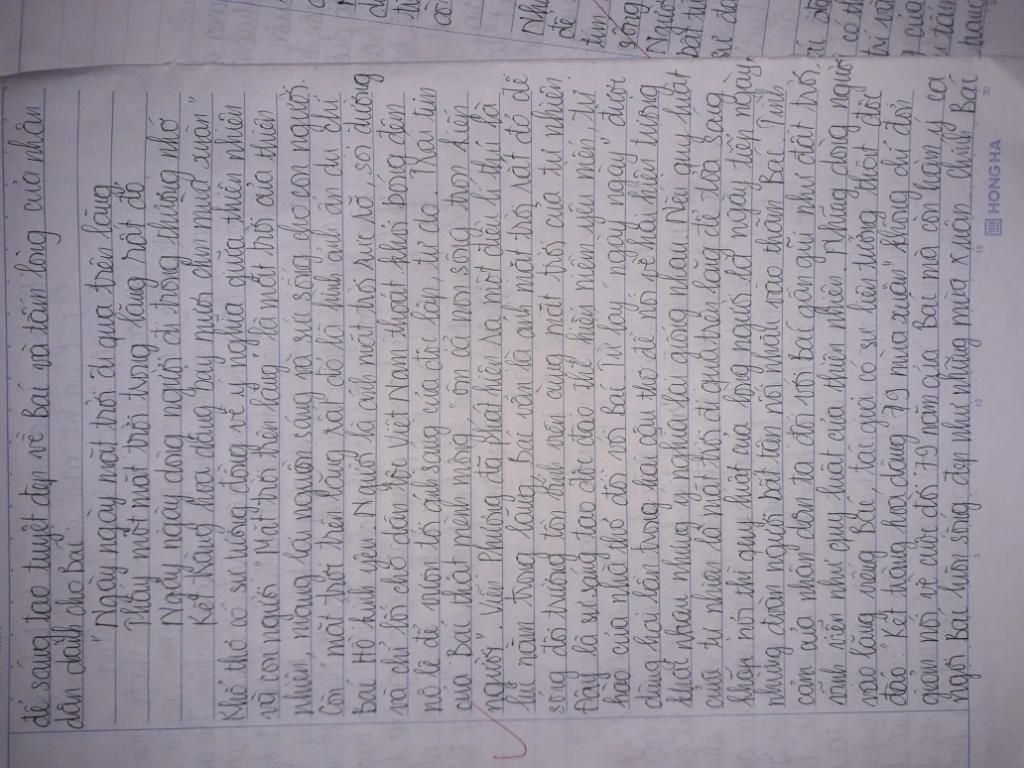 để sáng tạo tuyệt đẹp về Bác và tấm lòng của nhân
dân dành cho Bác
"Ngày ngày mặt trời đi qua trên lăng
Thấy một mặt trời trong lăng rất đỏ
Ngày ngày dòng người đi trong thương nhớ
Kết tràng hoa dâng bảy mươi chín mùa xuân"
Khổ thơ có sự tương đồng về ý nghĩa giữa thiên nhiên
và con người. "Mặt trời trên lăng" là mặt trời của thiên
nhiên, mang lại nguồn sáng và sức sống cho con người.
Còn "mặt trời trong lăng rất đỏ" là hình ảnh ẩn dụ chỉ
Bác Hồ kính yêu. Người là ánh mặt trời rực rỡ, soi đường
và chỉ lối cho dân tộc Việt Nam thoát khỏi bóng đêm
nô lệ để đến tới ánh sáng của độc lập, tự do. Trái tim
của Bác thật mênh mông "ôm cả non sông, trọn kiếp
người". Viễn Phương đã phát hiện ra một điều lí thú là
khi nằm trong lăng, Bác vẫn là anh mặt trời rất đỏ để
sống đời trường tồn vĩnh cửu cùng mặt trời của tự nhiên.
Đây là sự sáng tạo độc đáo thể hiện niềm yêu mến, tự
hào của nhà thơ đối với Bác. Từ láy "ngày ngày" được
dùng hai lần trong hai câu thơ để nói về hai hiện tượng
khác nhau nhưng ý nghĩa lại giống nhau. Nếu quy luật
của tự nhiên là mặt trời đi qua trên lăng để tỏa sáng
khắp nơi thì quy luật của lòng người là ngày tiếp ngày,
những đoàn người bất tận nối nhau vào thăm Bác. Tình
cảm của nhân dân ta đối với Bác gần gũi như đất trời,
vĩnh viễn như quy luật của thiên nhiên. Những dòng người
vào lăng viếng Bác, tác giả có sự liên tưởng thật độc
đáo "Kết tràng hoa dâng 79 mùa xuân" không chỉ đơn
giản nói về cuộc đời 79 năm của Bác mà còn hàm ý ca
ngợi Bác luôn sống đẹp như những mùa xuân. Chính Bác
HONG HA
5
10
15
20